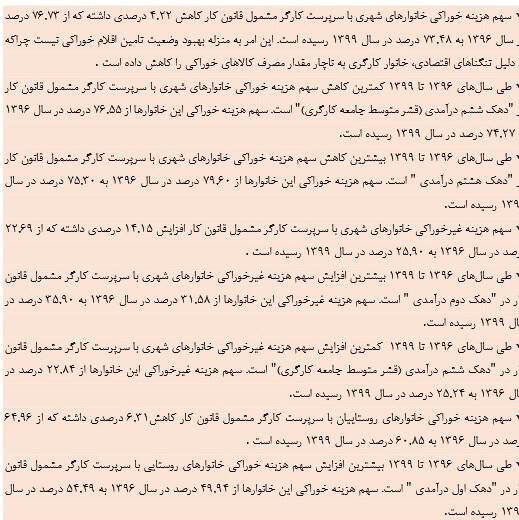 سهم هزینه خوراکی خانوارهای شهری با سرپرست کارگر مشمول قانون کار کاهش ۴.۲۲ درصدی داشته که از ۷۶.۷۳ درصد
سال ۱۳۹۶ به ۷۳.۴۸ درصد در سال ۱۳۹۹ رسیده است. این امر به منزله بهبود وضعیت تامین اقلام خوراکی نیست چراکه
دلیل تنگناهای اقتصادی، خانوار کارگری به ناچار مقدار مصرف کالاهای خوراکی را کاهش داده است .
طی سال‌های ۱۳۹۶ تا ۱۳۹۹ کمترین کاهش سهم هزینه خوراکی خانوارهای شهری با سرپرست کارگر مشمول قانون کار
"دهک ششم درآمدی (قشر متوسط جامعه کارگری)" است. سهم هزینه خوراکی این خانوارها از ۷۶.۵۵ درصد در سال ۱۳۹۶
۷۴.۲۷ درصد در سال ۱۳۹۹ رسیده است.
طی سال‌های ۱۳۹۶ تا ۱۳۹۹ بیشترین کاهش سهم هزینه خوراکی خانوارهای شهری با سرپرست کارگر مشمول قانون کار
"دهک هشتم درآمدی " است. سهم هزینه خوراکی این خانوارها از ۷۹.۶۰ درصد در سال ۱۳۹۶ به ۷۵.۳۰ درصد در سال
رسیده است.
سهم هزینه غیرخوراکی خانوارهای شهری با سرپرست کارگر مشمول قانون کار افزایش ۱۴.۱۵ درصدی داشته که از ۲۲.۶۹
در سال ۱۳۹۶ به ۲۵.۹۰ درصد در سال ۱۳۹۹ رسیده است .
طی سال‌های ۱۳۹۶ تا ۱۳۹۹ بیشترین افزایش سهم هزینه غیرخوراکی خانوارهای شهری با سرپرست کارگر مشمول قانون
در "دهک دوم درآمدی " است. سهم هزینه غیرخوراکی این خانوارها از ۳۱.۵۸ درصد در سال ۱۳۹۶ به ۳۵.۹۰ درصد در
۱۳۹۹ رسیده است.
طی سال‌های ۱۳۹۶ تا ۱۳۹۹ کمترین افزایش سهم هزینه غیرخوراکی خانوارهای شهری با سرپرست کارگر مشمول قانون
در "دهک ششم درآمدی (قشر متوسط جامعه کارگری)" است. سهم هزینه غیرخوراکی این خانوارها از ۲۲.۸۴ درصد در
۱۳۹۶ به ۲۵.۲۴ درصد در سال ۱۳۹۹ رسیده است.
سهم هزینه خوراکی خانوارهای روستاییان با سرپرست کارگر مشمول قانون کار کاهش۶.۳۱ درصدی داشته که از ۶۴.۹۶
در سال ۱۳۹۶ به ۶۰.۸۵ درصد در سال ۱۳۹۹ رسیده است .
طی سال‌های ۱۳۹۶ تا ۱۳۹۹ بیشترین افزایش سهم هزینه خوراکی خانوارهای روستایی با سرپرست کارگر مشمول قانون
در "دهک اول درآمدی " است. سهم هزینه خوراکی این خانوارها از ۴۹.۹۴ درصد در سال ۱۳۹۶ به ۵۴.۴۹ درصد در سال
رسیده است.